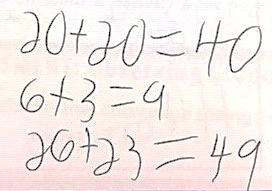 20+20=40
6+3=9
26+23=49